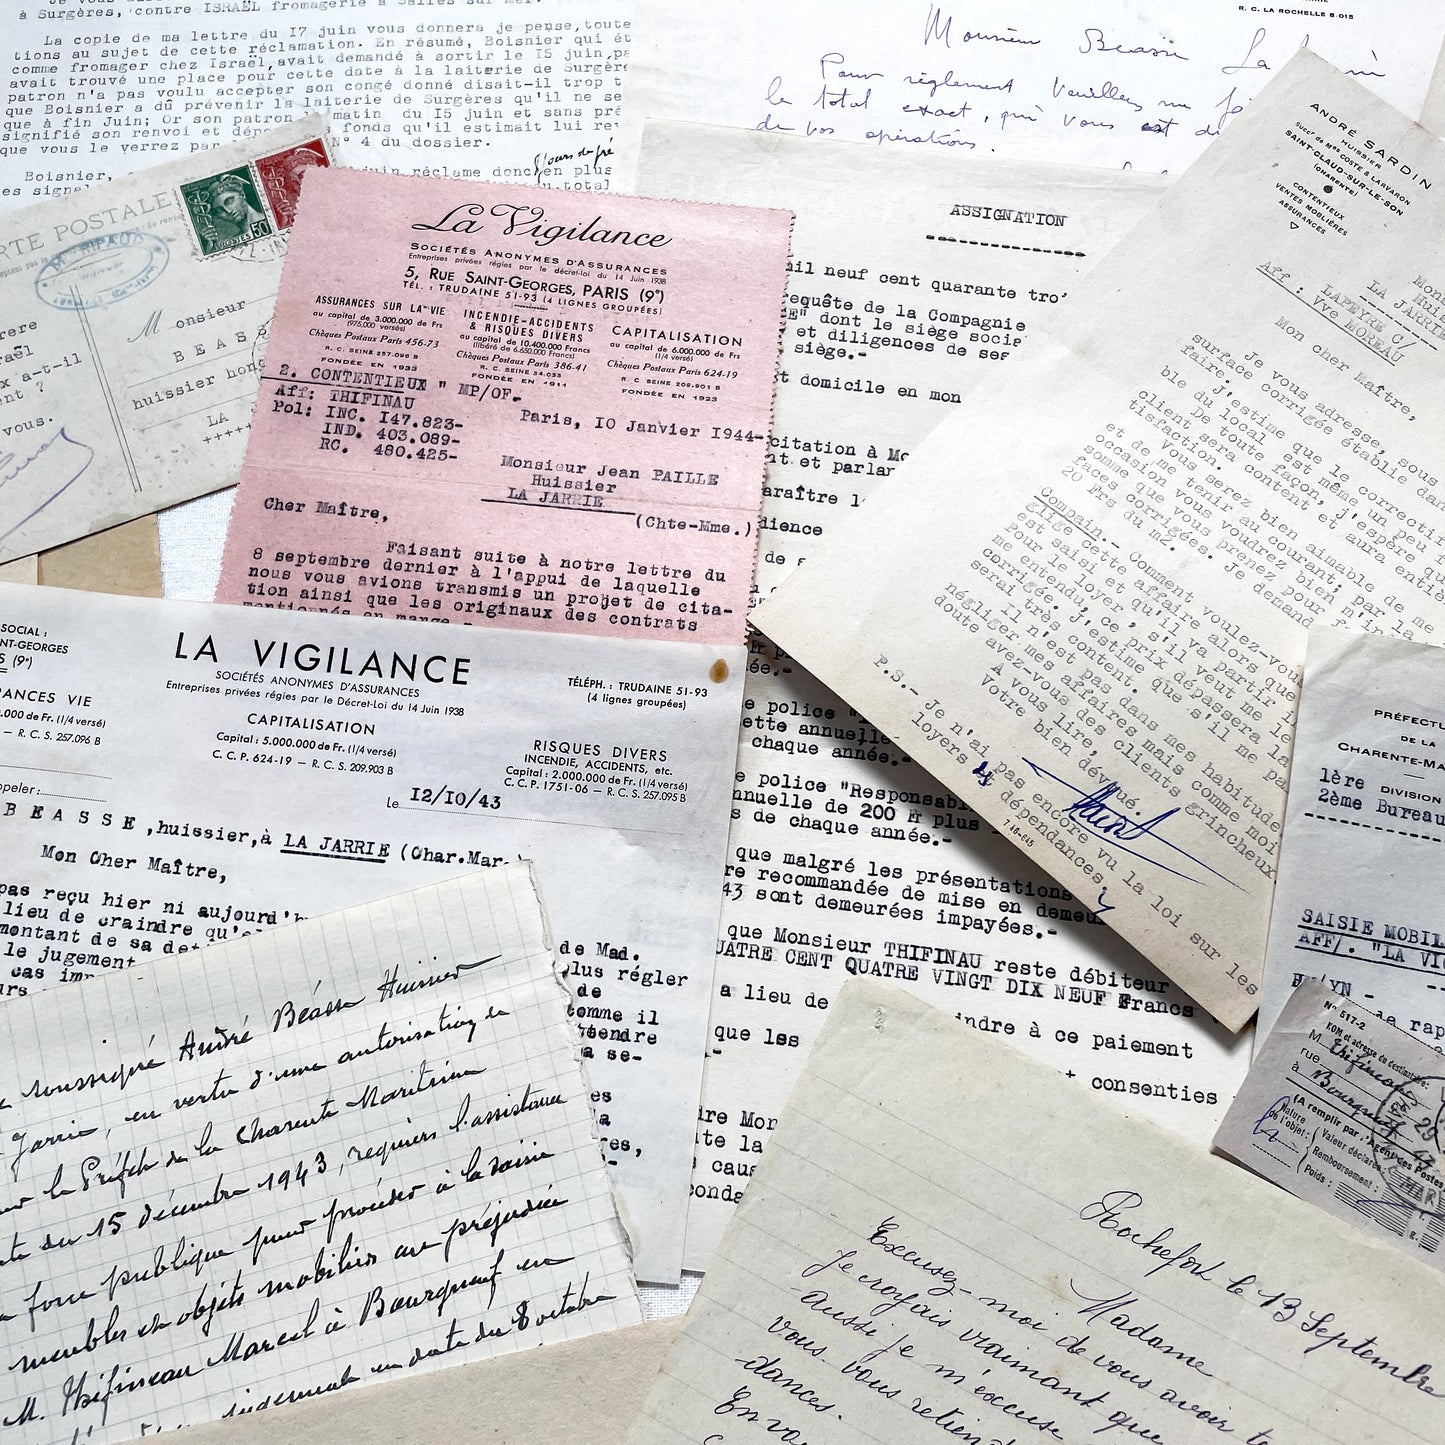 à Surgères, contre ISRAËL fromagerie à Salles sur mer.
La copie de ma lettre du I7 juin vous donnera je pense, toute
tions au sujet de cette réclamation. En résumé, Boisnier qui ét
comme fromager chez Israël, avait demandé à sortir le I5 juin, pa
avait trouvé une place pour cette date à la laiterie de Surgère
patron n'a pas voulu accepter son congé donné disait-il trop t
que Boisnier a dû prévenir la laiterie de Surgères qu'il ne se
que à fin Juin; Or son patron matin du I5 juin et sans pré
signifié son renvoi et dépo fonds qu'il estimait lui re
que vous le verrez par N° 4 du dossier.
Boisnier, réclame donc en plus
es signa total
R. C. LA ROCHELLE 8.015
Monsieur Beasse La
Pour règlement veuillez
le total exact, qui vous est
de vos opérations.
CARTE POSTALE
POSTES 50
Monsieur
BEAS
huissier hono
LA
+++++
rere
aël
x a-t-il
ent ?
vous.
La Vigilance
SOCIÉTÉS ANONYMES D'ASSURANCES
Entreprises privées régies par le décret-loi du 14 Juin 1938
5, RUE SAINT-GEORGES, PARIS (9e)
TÉL. : TRUDAINE 51-93 (4 LIGNES GROUPÉES)
ASSURANCES SUR LA VIE
au capital de 3.000.000 de Frs
(975.000 versés)
Chèques Postaux Paris 456-73
R. C. SEINE 257.096 B
FONDÉE EN 1933
INCENDIE-ACCIDENTS
& RISQUES DIVERS
au capital de 10.400.000 Francs
(libéré de 6.650.000 Francs)
Chèques Postaux Paris 386-41
R. C. SEINE 54.033
FONDÉE EN 1911
CAPITALISATION
au capital de 6.000.000 de Frs
(1/4 versé)
Chèques Postaux Paris 624-19
R. C. SEINE 209.901 B
FONDÉE EN 1923
2. CONTENTIEUX " MP/OF.
Aff: THIFINAU
Pol: INC. I47.823-
IND. 403.089-
RC. 480.425-
Paris, IO Janvier I944-
Monsieur Jean PAILLE
Huissier
LA JARRIE
(Chte-Mme.)
Cher Maître,
Faisant suite à notre lettre du
8 septembre dernier à l'appui de laquelle
nous vous avions transmis un projet de cita-
tion ainsi que les originaux des contrats
mentionnés en marge.-
ASSIGNATION
mil neuf cent quarante tro
equête de la Compagnie
E" dont le siège socia
et diligences de ses
siège.-
t domicile en mon
citation à Mo
nt et parlan
araître l
dience
de s
ée.-
e police
ette annuelle
chaque année.-
e police "Responsabi
nnuelle de 200 Fr plus
s de chaque année.-
que malgré les présentations
re recommandée de mise en demeu
43 sont demeurées impayées.-
que Monsieur THIFINAU reste débiteur
UATRE CENT QUATRE VINGT DIX NEUF Francs
a lieu de indre à ce paiement
que les
t consenties
ire Mon
te la
caus
onda
ANDRÉ SARDIN
HUISSIER
Succr de Mes COSTE & LARVARON
SAINT-CLAUD-SUR-LE-SON
(CHARENTE)
CONTENTIEUX
VENTES MOBILIÈRES
ASSURANCES
Mons
Hui
LA JARRIE
Aff : LAPEYRE C/
Vve MOREAU
Mon cher Maître,
Je vous adresse, sous
surface corrigée établie dan
faire. J'estime que le correctif
ble du local est même un peu
De toute façon, j'espère qu
client sera content et aura entiè
tisfaction.
Vous serez bien aimable de
et de me tenir au courant; par la
occasion vous voudrez bien m'in
somme que vous prenez pour f
faces corrigées. Je demand
20 Frs du m2.
Compain.- Comment voulez-vou
glige cette affaire alors que
est saisi et qu'il va partir i
pour le loyer, s'il veut la
me entendu, ce prix dépassera
corrigée. J'estime que s'il me pa
serai très content.
Il n'est pas dans mes habitude
négliger mes affaires mais comme moi
doute avez-vous des clients grincheux
A vous lire,
Votre bien dévoué.
P.S.- Je n'ai pas encore vu la loi sur les
loyers et dépendances
7.16-645
SOCIAL :
NT-GEORGES
S (9e)
RANCES VIE
.000 de Fr. (1/4 versé)
— R. C. S. 257.096 B
LA VIGILANCE
SOCIÉTÉS ANONYMES D'ASSURANCES
Entreprises privées régies par le Décret-Loi du 14 Juin 1938
TÉLÉPH. : TRUDAINE 51-93
(4 lignes groupées)
CAPITALISATION
Capital : 5.000.000 de Fr. (1/4 versé)
C. C. P. 624-19 — R. C. S. 209.903 B
RISQUES DIVERS
INCENDIE, ACCIDENTS, etc.
Capital : 2.000.000 de Fr. (1/4 versé)
C. C. P. 1751-06 — R. C. S. 257.095 B
ppeler :
Le I2/IO/43
BEASSE, huissier, à LA JARRIE (Char.Mar.
Mon Cher Maître,
pas reçu hier ni aujourd'h
lieu de craindre qu'el
montant de sa det
le jugement
cas imp
urs
de Mad.
lus régler
de
comme il
ttendre
a se-
es
a
res,
soussigné André Béasse Huissier
Jarrie, en vertu d'une autorisation en
le Préfet de la Charente Maritime
te du 15 décembre 1943, requiers l'assistance
force publique pour procéder à la saisie
meubles et objets mobiliers au préjudice
M. Thifineau Marcel à Bourgneuf en
jugement en date du 8 octobre
PRÉFECTU
DE LA
CHARENTE-MA
1ère DIVISION
2ème Bureau
SAISIE MOBIL
AFF/. "LA VIG
de rap
N° 517-2
NOM et adresse du destinataire:
M. Thifineau
rue
à Bourgneuf
(A remplir par l'Agent des Postes
Nature de l'objet:
Valeur déclarée:
Remboursement:
Poids :
Rochefort le 13 Septembre
Madame
Excusez-moi de vous avoir
Je croyais vraiment que
aussi je m'excuse
vous vous retien
dances.